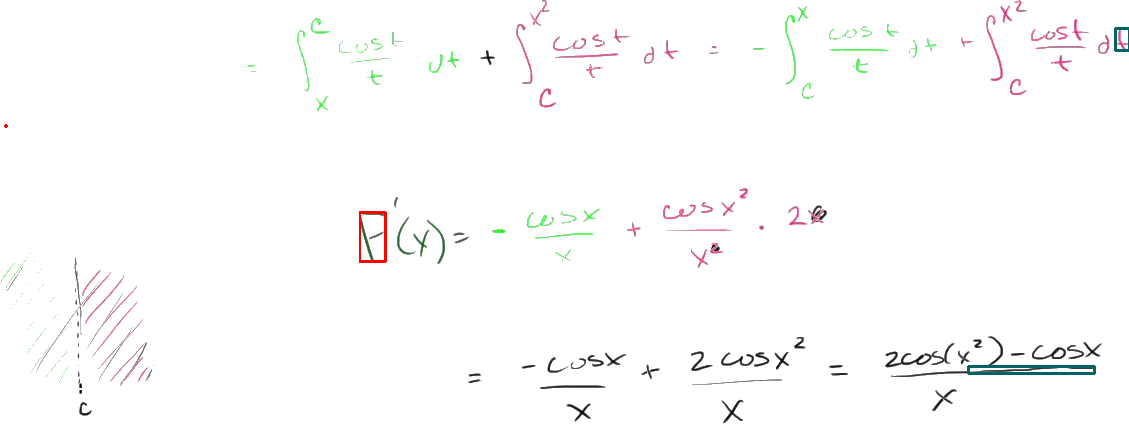 = ∫_x^c cost/t dt + ∫_c^{x²} cost/t dt = - ∫_c^x cost/t dt + ∫_c^{x²} cost/t dt
F'(x) = - cosx/x + cosx²/x² · 2x
c
= -cosx/x + 2cosx²/x = 2cos(x²)-cosx/x